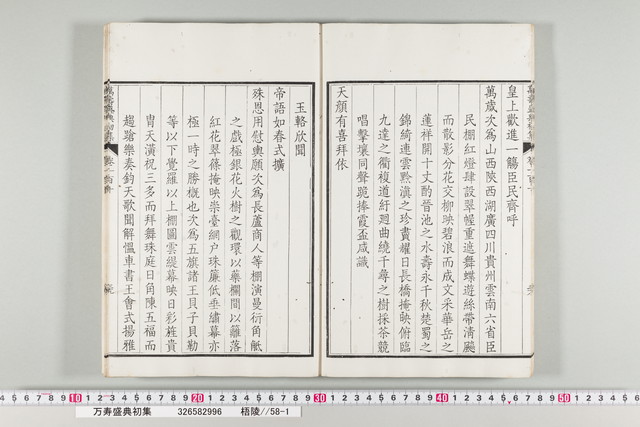 皇上歡進一觴臣民齊呼
萬歲次為山西陝西湖廣四川貴州雲南六省臣
民棚紅燈肆設翠幄重遮舞蝶遊絲帶清飈
而散影分花交柳映碧浪而成文采華岳之
蓮祥開十丈酌晉池之水壽永千秋楚蜀之
錦綺連雲黔滇之珍畫耀日長橋掩映俯臨
九逵之衢複道紆廻曲繞千尋之樹採茶競
唱擊壤同聲跪捧霞盃咸識
天顔有喜拜依
玉輅欣聞
帝語如春式擴
殊恩用慰輿願次為長蘆商人等棚演曼衍角觝
之戲極銀花火樹之觀環以藥欄間以籬落
紅花翠篠掩映崇臺網户珠簾低垂繡幕亦
極一時之勝概也次為五旗諸王貝子貝勒
等以下覺羅以上棚圖雲緹幕映日彩旌貴
胄天潢祝三多而拜舞珠庭日角陳五福而
趨蹌樂奏鈞天歌聞解慍車書王會式揚雅
万寿盛典初集 326582996 梧陵//58-1
10 20 30 40 50